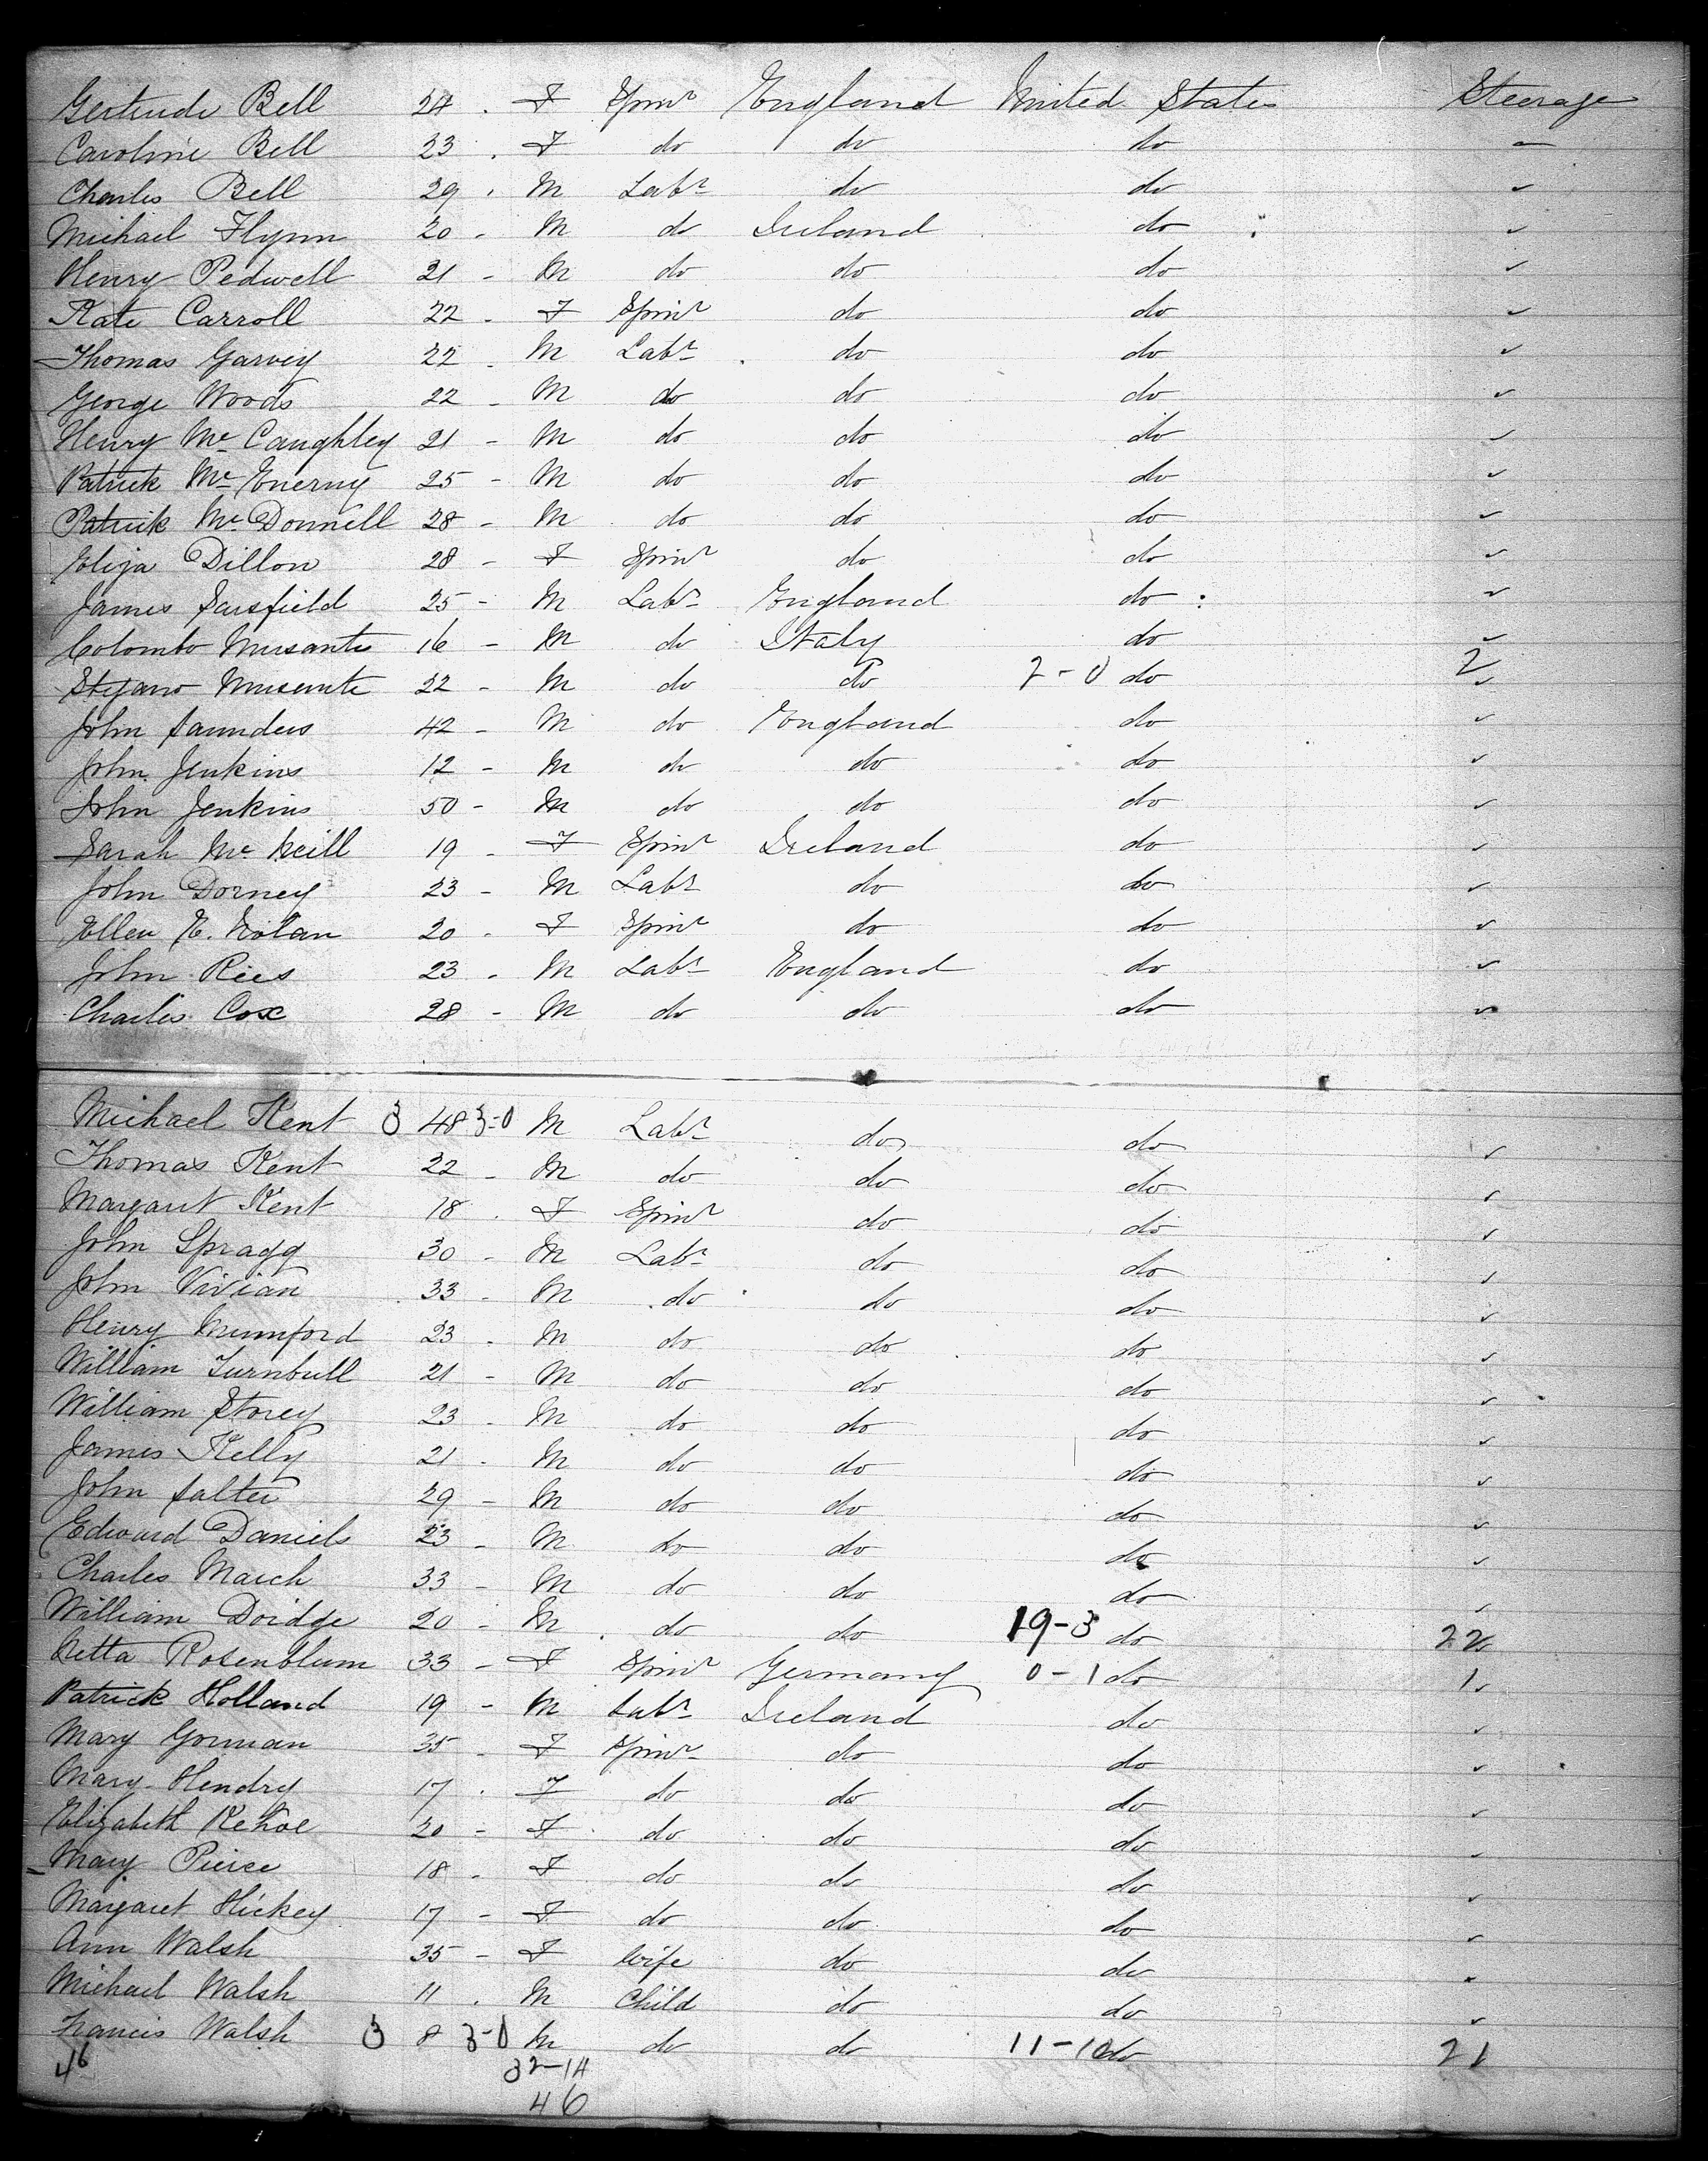 Gertrude Bell 24 . F Spinr England United States Steerage
Caroline Bell 23 . F do do do
Charles Bell 29 . M Labr do do
Michael Flynn 20 - M do Ireland do
Henry Pedwell 21 - M do do do
Kate Carroll 22 - F Spinr do do
Thomas Garvey 22 - M Labr do do
George Woods 22 - M do do do
Henry Mc Caughley 21 - M do do do
Patrick Mc Enerny 25 - M do do do
Patrick Mc Donnell 28 - M do do do
Eliza Dillon 28 - F Spinr do do
James Sarsfield 25 - M Labr England do
Colombo Musante 16 - M do Italy do
Stefano Musante 22 - M do do 2-0 do 2
John Saunders 42 - M do England do
John Jenkins 12 - M do do do
John Jenkins 50 - M do do do
Sarah Mc Neill 19 - F Spinr Ireland do
John Dorney 23 - M Labr do do
Ellen E. Nolan 20 - F Spinr do do
John Rees 23 - M Labr England do
Charles Cox 28 - M do do do
Michael Kent 3 48 3-0 M Labr do do
Thomas Kent 22 - M do do do
Margaret Kent 18 . F Spinr do do
John Spragg 30 - M Labr do do
John Vivian 33 - M do do do
Henry Mumford 23 - M do do do
William Turnbull 21 - M do do do
William Storey 23 - M do do do
James Kelly 21 - M do do do
John Salter 29 - M do do do
Edward Daniels 23 - M do do do
Charles March 33 - M do do do
William Doidge 20 - M do do 19-3 do 22
Netta Rosenblum 33 - F Spinr Germany 0-1 do 1
Patrick Holland 19 - M Labr Ireland do
Mary Gorman 35 - F Spinr do do
Mary Hendry 17 . F do do do
Elizabeth Kehoe 20 - F do do do
Mary Pierce 18 - F do do do
Margaret Hickey 17 - F do do do
Ann Walsh 35 - F Wife do do
Michael Walsh 11 . M Child do do
Francis Walsh 3 8 3-0 M do do 11-10 do 21
46 32-14
46